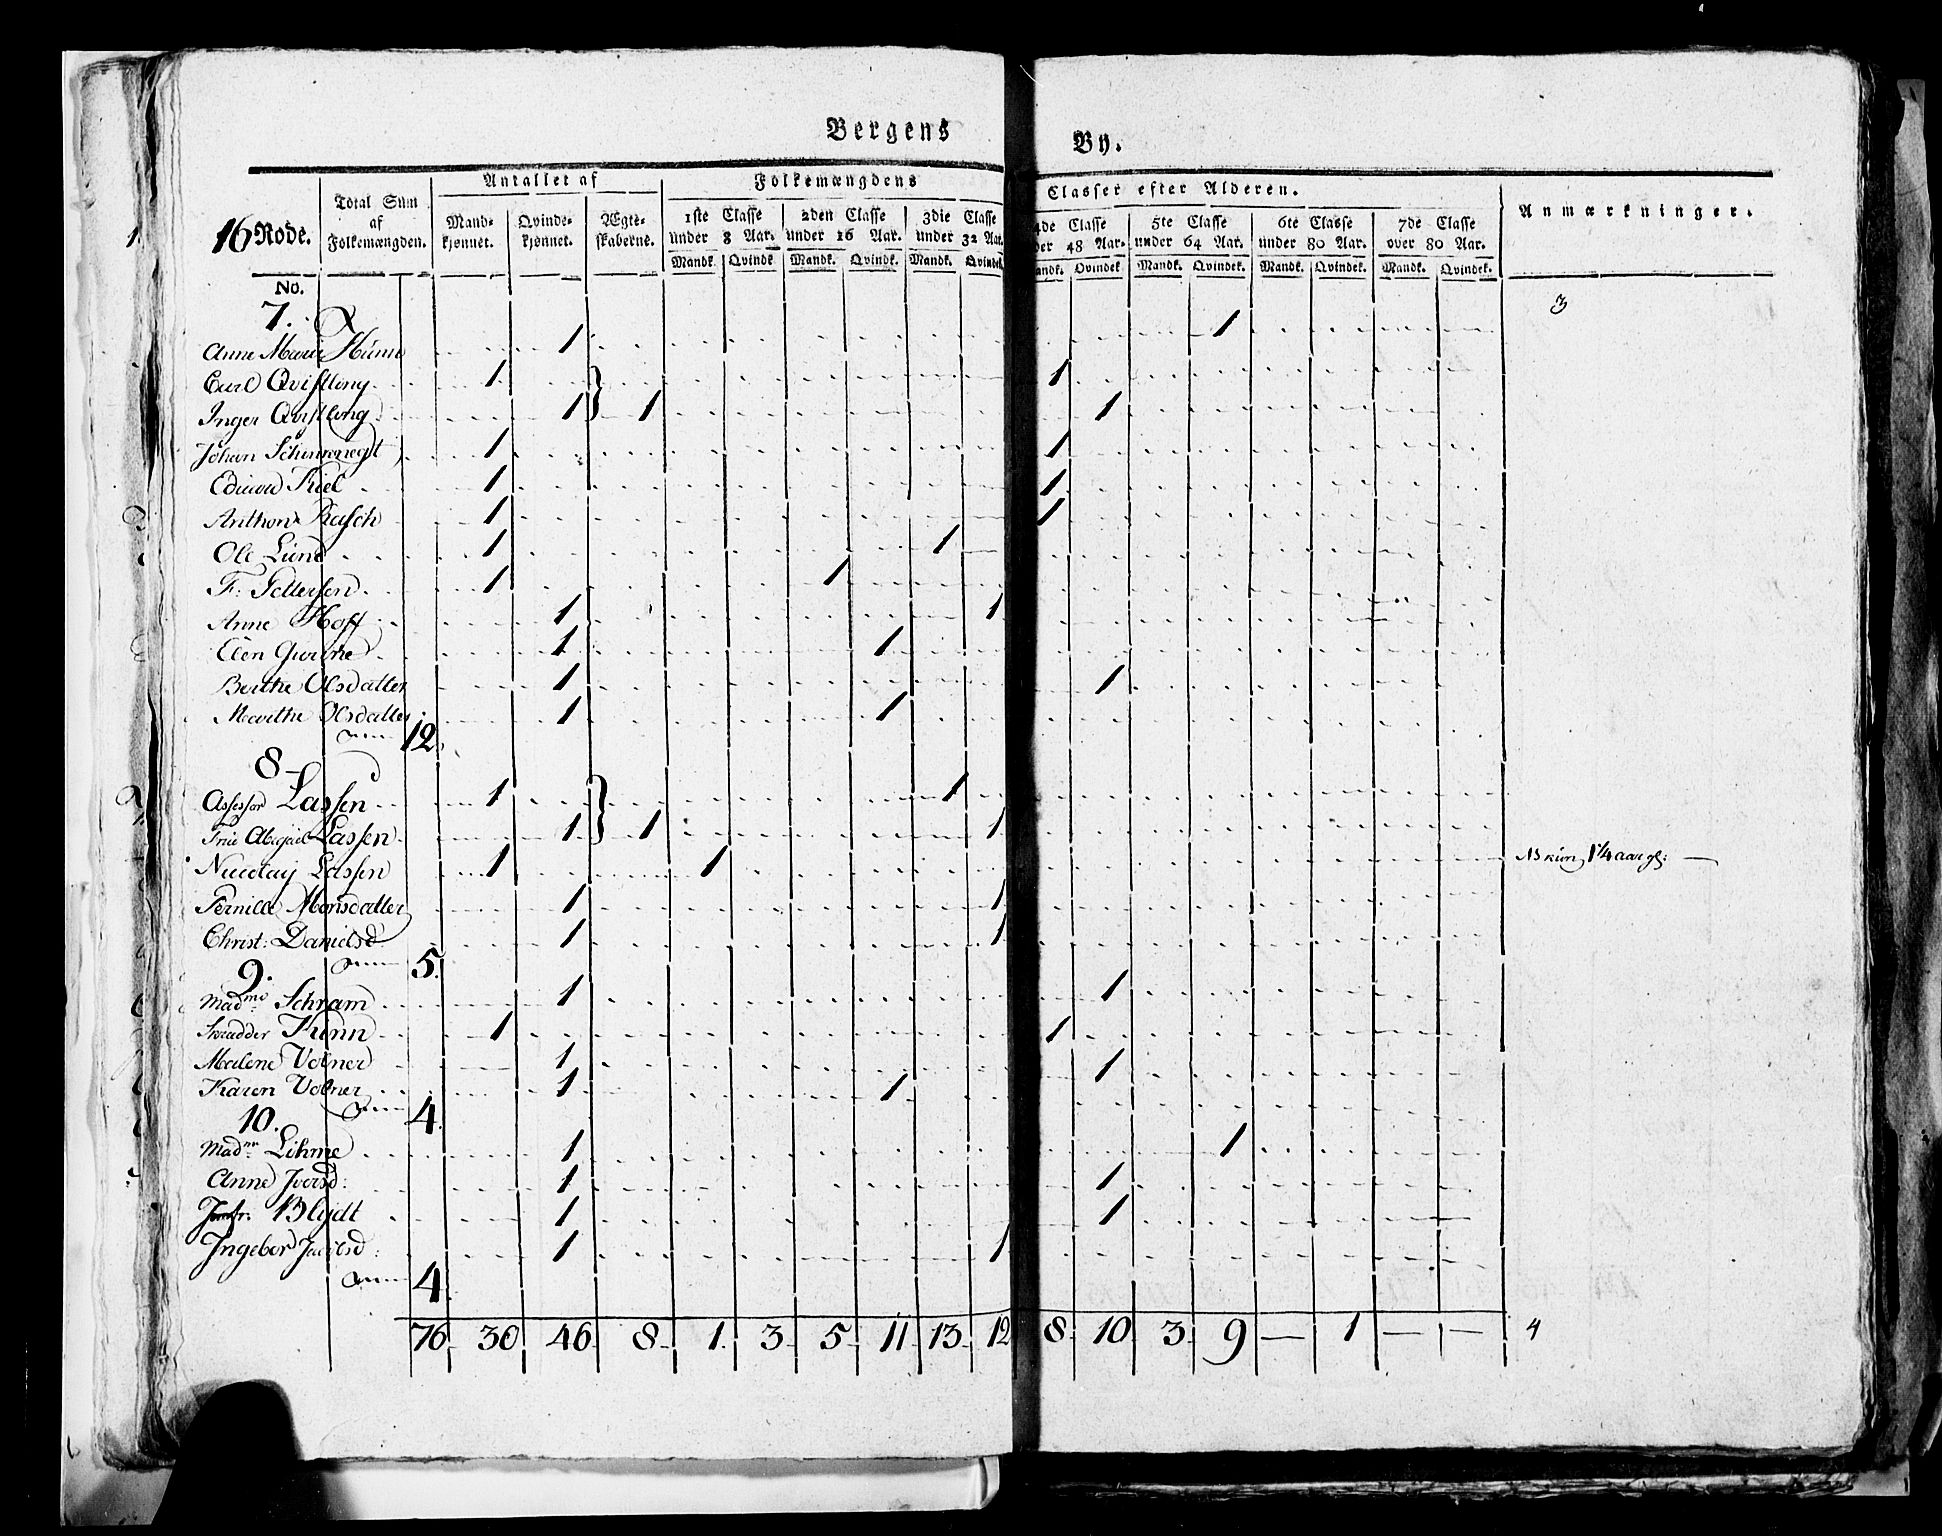 Bergens By.
16 Rode.
Total Sum af Folkemængden.
Antallet af
Mandkjønnet.
Qvindekjønnet.
Ægteskaberne.
Folkemængdens Classer efter Alderen.
1ste Classe under 8 Aar.
2den Classe under 16 Aar.
3die Classe under 32 Aar.
4de Classe 48 Aar.
5te Classe under 64 Aar.
6te Classe under 80 Aar.
7de Classe over 80 Aar.
Anmærkninger.
Mandk. Qvindek. Mandk. Qvindk. Mandk. Qvindek. Mandk. Qvindek. Mandk. Qvindek. Mandk. Qvindek. Mandk. Qvindek.
No.
7. 3
Anne Maria 1 1
Carl Qvistling 1 1
Inger Qvistling 1 1 1
Johan 1 1
Edvard Kiel 1 1
Anthon Rasch 1 1
Ole Lund 1 1
F: Pettersen 1 1
Anne Hoff 1 1
Elen 1 1
Berthe Olsdatter 1 1
Marithe Olsdatter 1 1
12.
8
Assessor Lassen 1 1
Frue Abigael Lassen 1 1 1
Nicolay Lassen 1 1 NB kun 1 1/4 aar gl:
Pernille Monsdatter 1 1
Christ: Danielsd 1 1
5.
9.
Madme Schram 1 1
Skradder Kunn 1 1
Malene Volner 1 1
Karen Volner 1 1
4.
10.
Madm Lihme 1 1
Anne Iversd: 1 1
Jomfr: Blydt 1 1
Ingebor 1 1
4.
76 30 46 8 1. 3 5 11 13 12 8 10 3 9 — 1 — — 4